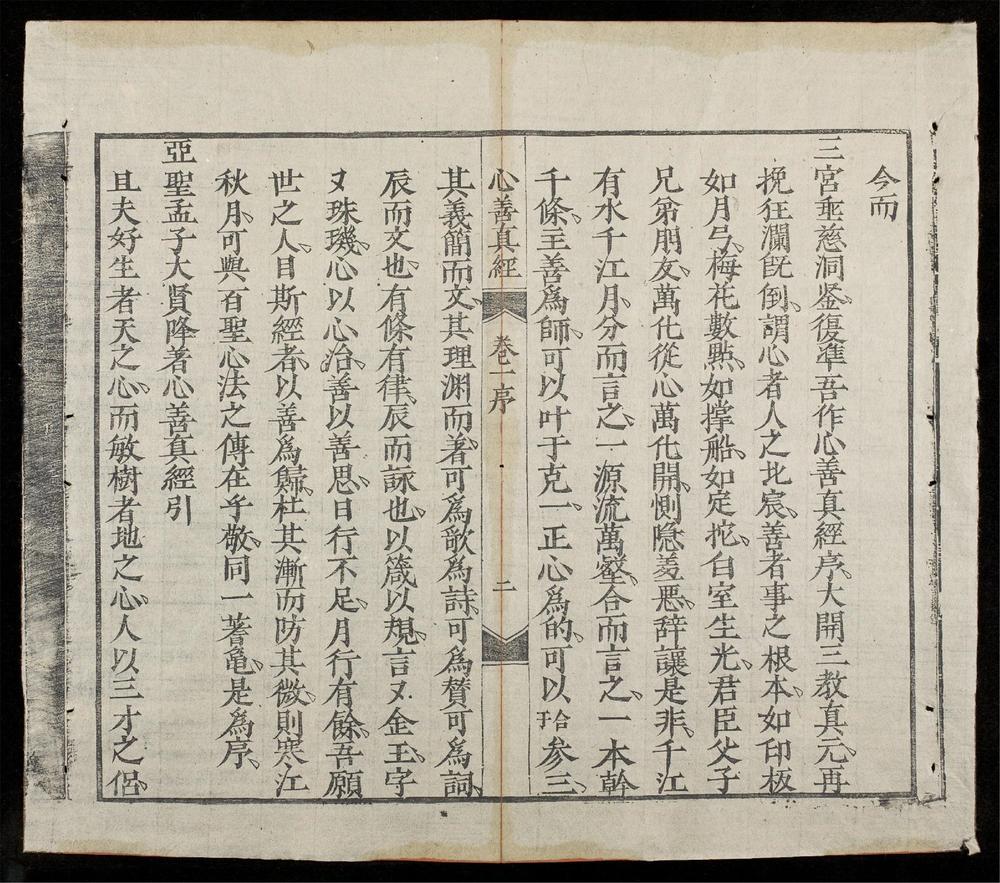 今而
三宮垂慈洞鉴、復準吾作心善真經序、大開三教真元、再
挽狂瀾既倒、謂心者人之北宸、善者事之根本、如印板
如月弓、梅花數點、如撑船、如定挓、白室生光、君臣父子
兄弟朋友、萬化從心萬化開、惻隐羞悪、辞讓是非、千江
有水千江月、分而言之、一源流萬壑、合而言之、一本幹
千條、主善為師、可以叶于克一、正心為的、可以合于参三、
心善真經 卷一序 二
其義簡而文、其理渊而著、可為歌為詩、可為賛可為詞、
辰而文也、有條有律、辰而詠也、以箴以規、言又金玉、字
又珠璣、心以心治、善以善思、日行不足、月行有餘、吾願
世之人、目斯經者、以善為歸、杜其漸而防其微、則寒江
秋月、可與百聖心法之傳在乎敬、同一蓍亀、是為序、
亞聖孟子大賢降著心善真經引
且夫好生者天之心、而敏樹者地之心、人以三才之侣、